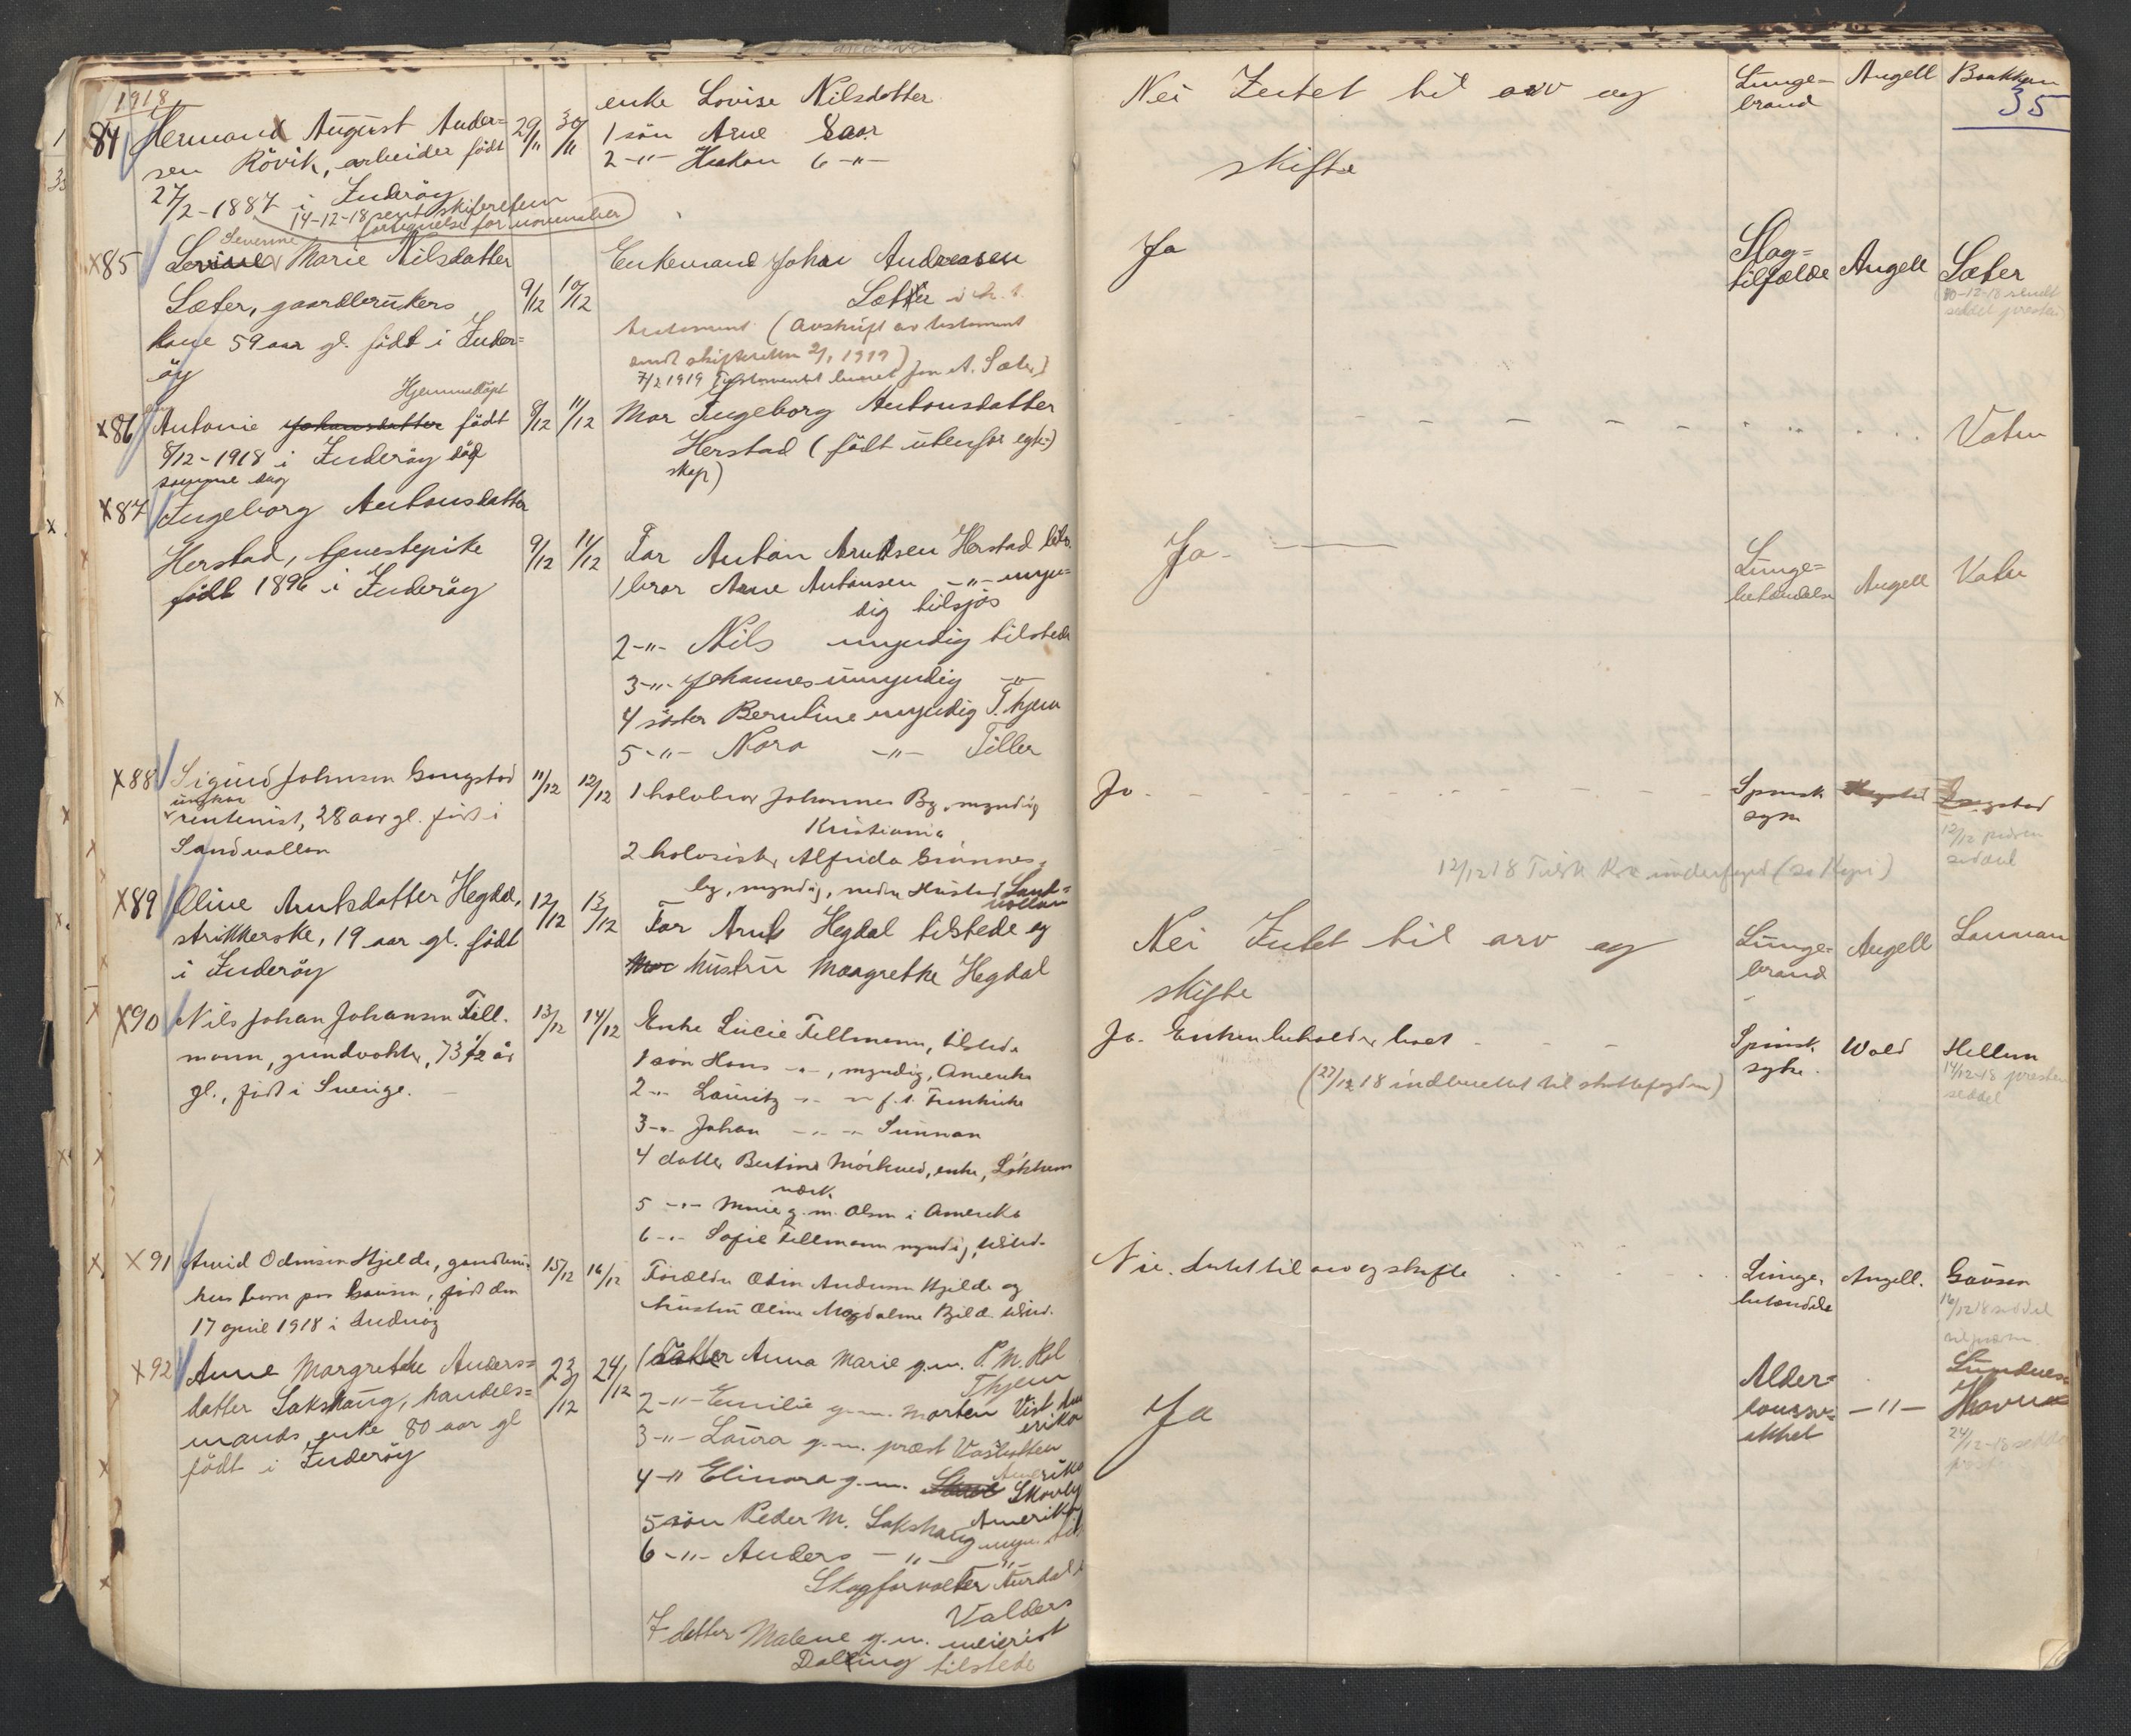 1918
84 Hermand August Ander=
sen Rövik, arbeider født
27/2-1887 i Inderöy
29/11 30/11
14-12-18 sent skifteretten
fortegnelse for november
enke Lovise Nilsdatter
1 sön Arne 8 aar
2 -"- Hakon 6 -"-
Nei Intet til arv og
skifte
Lunge=
brand
Angell
Bakken
35
x85 Severine Marie Nilsdatter
Sæter, gaardbrukers
kone 59 aar gl. født i Inder=
öy
9/12 10/12
Enkemand Johan Andreasen
Sæter
testament (Avskrift av testament
sendt skifteretten 2/1 1919)
7/2 1919 Testamentet Jon A. Sæter
Ja
Slag=
tilfælde
Angell
Sæter
10-12-18 sendt
seddel presten
x86 Antonie Johansdatter født
Hjemmedöpt
8/12-1918 i Inderöy död
samme dag
8/12 11/12
Mor Ingeborg Antonsdatter
Herstad (født utenfor egte=
skap)
Vatn
x87 Ingeborg Antonsdatter
Herstad, tjenestepike
født 1896 i Inderöy
9/12 11/12
Far Anton Arntsen Herstad
1 bror Arne Antonsen -"- myn=
dig tilsjøs
2 -"- Nils myndig tilstede
3 -"- Johannes umyndig -"-
4 söster Bernline myndig T.hjem
5 -"- Nora -"- Tiller
Ja
Lunge=
betændelse
Angell
Vatn
x88 Sigurd Johnsen Gangstad
ungkar
rentenist, 28 aar gl. født i
Sandvollan
11/12 12/12
1 halvbror Johannes By, myndig
Kristiania
2 halvsister Alfrida Grönnes=
by, myndig, nedre Hustad Sand=
vollan
Ja
Spansk
syke
Gangstad
12/12
12/12 18
x89 Oline Arntsdatter Hegdal,
strikkerske, 19 aar gl. født
i Inderöy
12/12 13/12
Far Arnt Hegdal tilstede og
Mor hustru Margrethe Hegdal
Nei Intet til arv og
skifte
Lunge=
brand
Angell
Sannan
x90 Nils Johan Johansen Fell=
mann, grindvokter, 73 1/2 år
gl., født i Sverige.
13/12 14/12
Enke Lucie Fellmann, tilstede
1 sön Hans -"-, myndig, Amerika
2 -"- Lauritz -"- -"- f.t. Frankrike
3 -"- Johan -"- -"- Sunnan
4 datter Bertine Mörkved, enke, Lökkum
verk
5 -"- Marie g.m. Olsen i Amerika
6 -"- Sofie Fellmann myndig, tilsted.
Ja. Enken beholder boet
(27/12 18 indberettet til skattefogden)
Spansk
syke.
Wold
Hellem
14/12-18 presten
seddel
x91 Arvid Odinsen Hjelde, gaardbru=
kers barn paa Gausen, født den
17 april 1918 i Inderöy
15/12 16/12
Forældre Odin Andersen Hjelde og
hustru Oline Magdalene Hjelde tilsted.
Nei. Intet til arv og skifte
Lunge=
betændelse
Angell.
Gausen
16/12 18 seddel
til presten
x92 Anne Margrethe Anders=
datter Sakshaug, handels=
mands enke 80 aar gl
født i Inderöy
23/12 24/12
1 datter Anna Marie g.m. P. M. Kol
Thjem
2 -"- Emilie g.m. Morten Vist Am
erika
3 -"- Laura g.m. præst
Amerika
4 -"- Elinora g.m. Skovly
Amerika
5 sön Peder M. Sakshaug myn.
6 -"- Anders -"- -"-
Skogforvalter Aurdal i
Valders
7 datter Malene g.m. meierist
Dalling tilstede
Ja
Alder=
domssv=
akhet
-"-
24/12-18 seddel